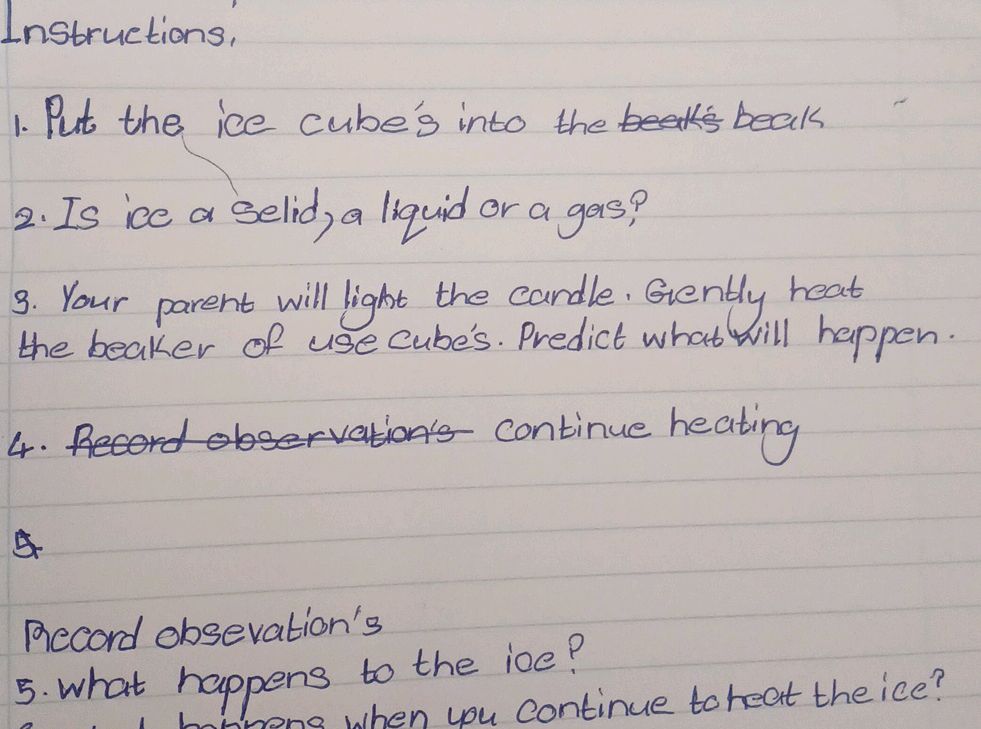 Instructions,
1. Put the ice cube's into the beak's beak
2. Is ice a selid, a liquid or a gas?
3. Your parent will light the candle. Gently heat
the beaker of use cube's. Predict what will happen.
4. Record observation's continue heating
5
Record obsevation's
5. What happens to the ice?
happens when you continue to heat the ice?